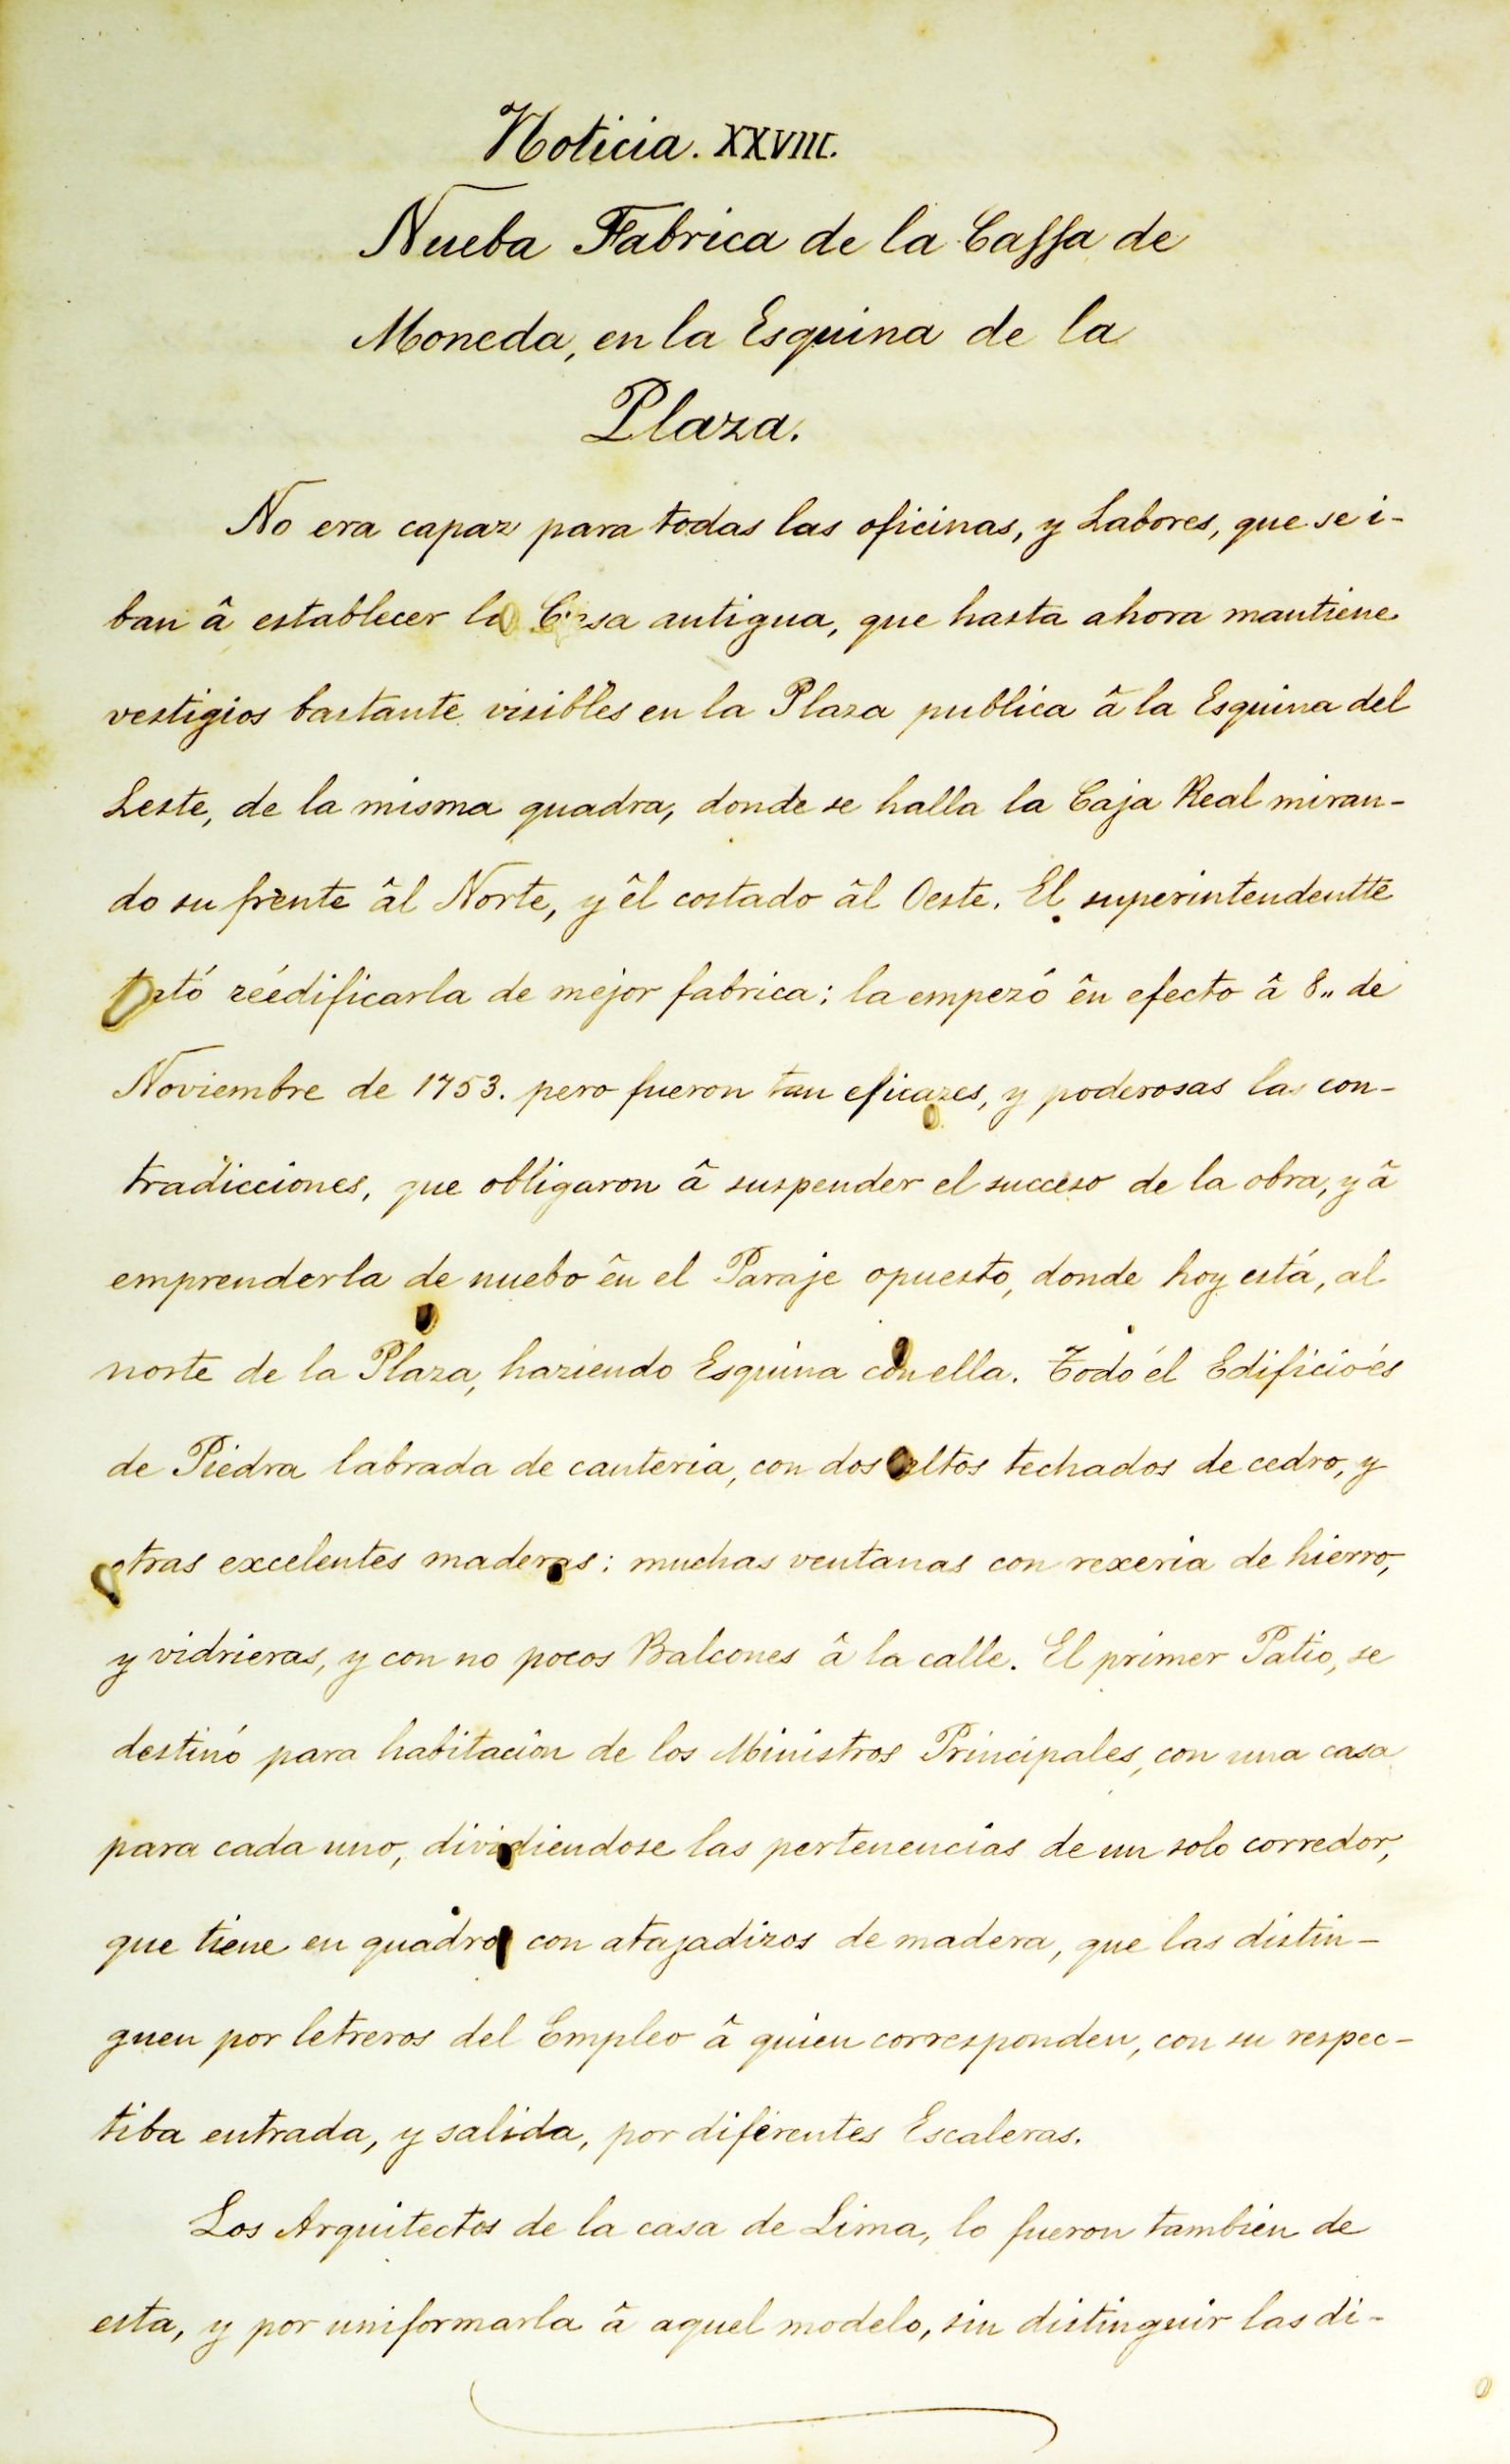 Noticia. XXVIII.
Nueba Fabrica de la Cassa de
Moneda, en la Esquina de la
Plaza.
No era capaz para todas las oficinas, y Labores, que se i-
ban â establecer la Casa antigua, que hasta ahora mantiene
vestigios bastante visibles en la Plaza publica â la Esquina del
Leste, de la misma quadra, donde se halla la Caja Real miran-
do su frente âl Norte, y êl costado âl Oeste. El superintendentte
tató reédificarla de mejor fabrica: la empezó ên efecto â 8,, de
Noviembre de 1753. pero fueron tan eficazes, y poderosas las con-
tradicciones, que obligaron â suspender el succeso de la obra, y â
emprenderla de nuebo ên el Paraje opuesto, donde hoy está, al
norte de la Plaza, haziendo Esquina con ella. Todo él Edificio és
de Piedra labrada de canteria, con dos altos techados de cedro, y
otras excelentes maderas: muchas ventanas con rexeria de hierro,
y vidrieras, y con no pocos Balcones â la calle. El primer Patio, se
destinó para habitación de los Ministros Principales, con una casa
para cada uno, dividiendose las pertenencias de un solo corredor,
que tiene en quadro con atajadizos de madera, que las distin-
guen por letreros del Empleo â quien corresponden, con su respec-
tiba entrada, y salida, por diferentes Escaleras.
Los Arquitectos de la casa de Lima, lo fueron tambien de
esta, y por uniformarla â aquel modelo, sin distinguir las di-